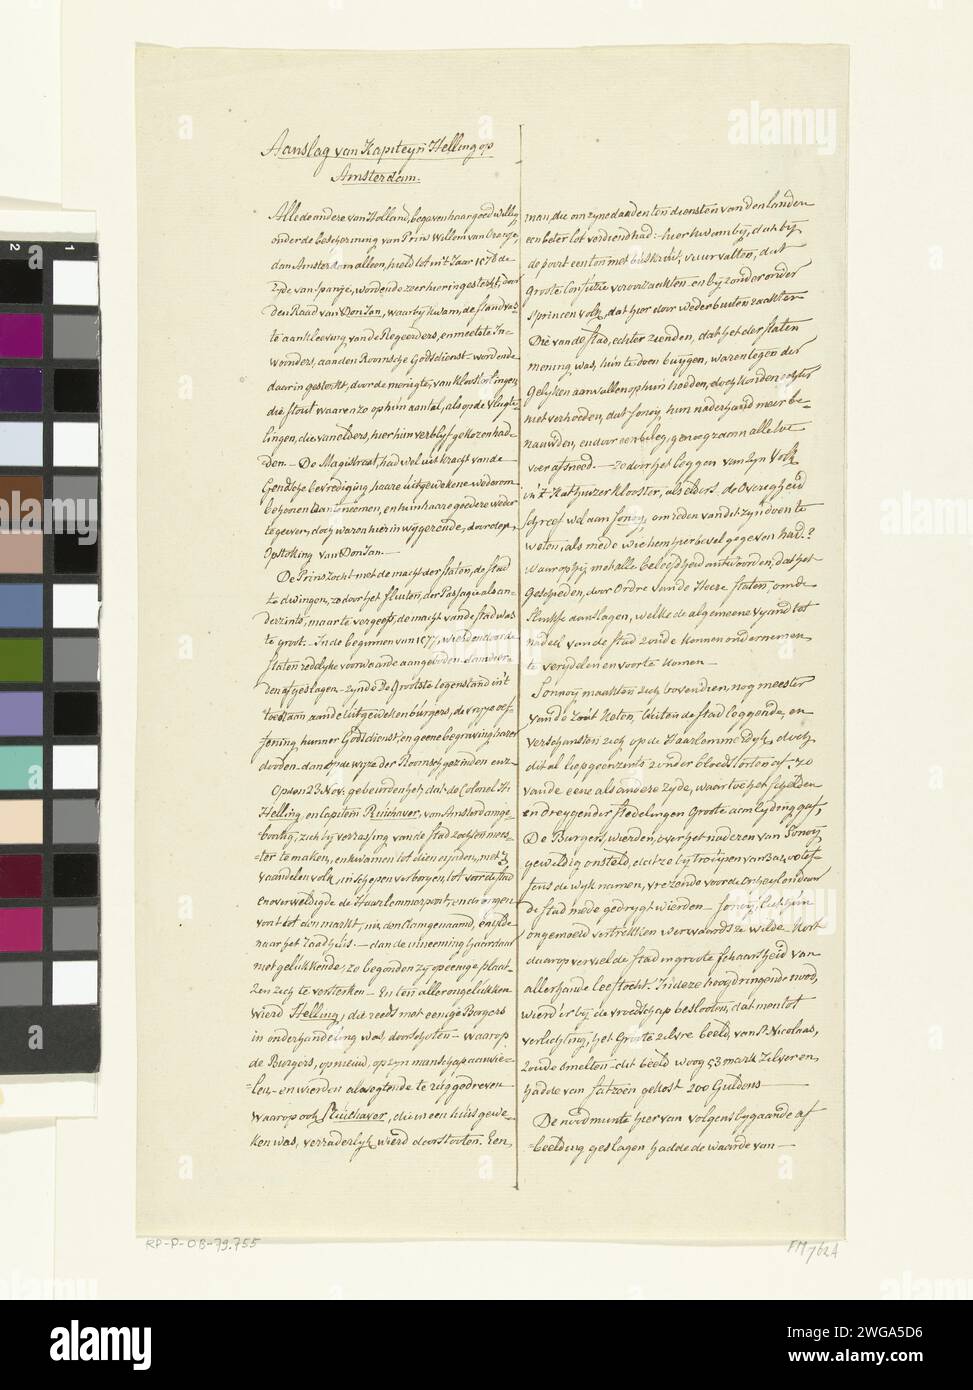 Aanslag van Kapiteyn Helling op
Amsterdam.
Alle de andere van Holland, begaven haar goedwillig
onder de bescherming van Prins Willem van Oranje,
dan Amsterdam alleen, hield tot in't Jaar 1578 de
zyde van Spanje, wordende zeer hierin gesterkt, door
den Raad van Don Jan, waar by kwam, de standvas-
te aankleeving van de Regeerders, en meeste In-
woonders, aan den Roomsche Godtsdienst - wordende
daar in gesterkt, door de menigte, van kloosterlingen
die stout waaren zo op hun aantal, als op de vlugte-
lingen, die van elders, hier hun verblyf gekozen had-
den. — De Magistraat, had wel uit kracht van de
Gendsche bevrediging haare uitgewekene wederom
behooren aan te neemen, en hun haare goederen weder
te geven, doch waren hier in wygerende, door op-
stoking van Don Jan. —
De Prins zocht met de macht der staten, de stad
te dwingen, zo door het sluiten, der Passagie als an-
derzints, maar te vergeefs, de macht van de stad was
te groot. In de beginnen van 1577, wierden door de
staten reddelyke voorwaarde aangeboden dan wier-
den afgeslagen - zynde De Grootste tegenstand in't
toestaan aan de uitgeweken burgers, de vrye oef-
fening hunner Godtsdienst, en geene begraving haarer
dooden dan op de wyze der Roomschgezinden enz.
Op den 23 Nov: gebeurden het, dat de Colonel H:
Helling en Capitein Ruichaver, van Amsterdam ge-
boortig, zich by verrassing van de stad zochten mees-
=ter te maken, en kwamen tot dien eynden, met 3
vaandelen volk, in schepen verborgen, tot voor de stad
en overweldigde de Haarlemmerpoort, en drongen
voort tot den markt, nu den Dam genaamd, en ylde
naar het Raadhuis. — dan de inneeming haar daar
niet gelukkende, zo begonden zy op eenige plaat-
zen zich te versterken — En ten allerongelukken
wierd Helling, die reeds met eenige Borgers
in onderhandeling was, doorschoten — waarop
de Burgers, op nieuw, op zyn manschap aanvie-
=len, en wierden al vegtende te rug gedreven
waarop ook Ruichaver, die in een huis gewe-
ken was, verraderlyk wierd doorstooten. Een,
man, die om zyne daaden ten diensten van den lande
een beter lot verdiend had: hier kwam by, dat by
de poort een ton met buskruit, vuur vatten, dat
groote Confusie veroorzaakten en byzonder onder
s'princen volk, dat hier door weder buiten raakten
Die van de stad, echter ziende, dat het der staten
mening was, hun te doen buygen, waren tegen der
gelyken aanvallen op hun hoeden, doch konden echter
niet verhoeden, dat Sonoy, hun naderhand meer be-
nauwden, en door een beleg, genoegzaam alle toe
voer afsneed. — zo door het leggen van zyn volk
in't Kathuizer klooster, als elders. de Overigheid
schreef wel aan Sonoy, om reden van dit zyn doen te
weten, als mede wie hem hier bevel gegeven had.?
Waar op hy met alle beleefdheid antwoorden, dat het
Geschieden, door Ordre van de Heere staten, om de
slinkse aanslagen, welke de algemeene vyand tot
nadeel van de stad zoude konnen ondernemen
te verydelen en voor te komen —
Sonnoy maakten zich bovendien, nog meester
van de zout Keten, buiten de stad leggende, en
verschansten zich op de Haarlemmerdyk, doch
dit al liep geenzints zonder bloedstorten af. zo
van de eene als andere zyde, waar toe het schelden
en dreygen der stedelingen Groote aanlyding gaf,
De Burgers, wierden, over het naderen van Sonoy
geweldig ontsteld,
de stad mede gedrygt wierden — Sonoy, liet hun
ongemoeid vertrekken werwaards ze wilde. Kort
daarop verviel de stad in groote schaarsheid van
allerhande leeftocht. In deze hoogdringende nood,
wierd'er by de vroedschap beslooten, dat men tot
verlichting, het Groote zilvre beeld, van St. Nicolaas,
zoude smelten - dit beeld woog 53 mark zilver en,
hadde van fatzoen gekost 200 Guldens —
De noodmunte hier van volgens bygaande af
=beelding geslagen hadde de waarde van —
RP-P-OB-79.755
FM 762A
2
1
alamy
Image ID: 2WGA5D6
www.alamy.com